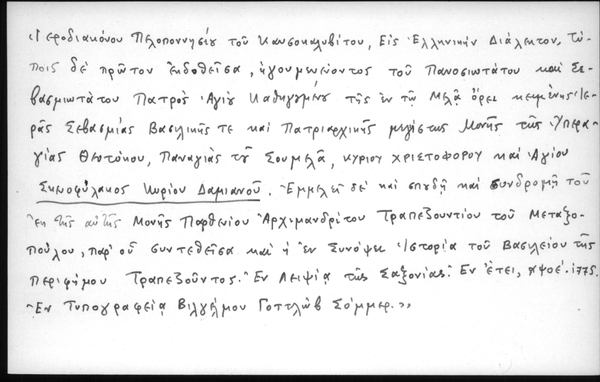 «Ἱεροδιακόνου Πελοποννησίου τοῦ Καυσοκαλυβίτου, Εἰς Ἑλληνικὴν Διάλεκτον, Τύ-
ποις δὲ πρῶτον ἐκδοθεῖσα, ἡγουμενεύοντος τοῦ Πανοσιωτάτου καὶ Σε-
βασμιωτάτου Πατρὸς Ἁγίου Καθηγουμένου τῆς ἐν τῷ Μελᾷ ὄρει κειμένης Ἱε-
ρᾶς Σεβασμίας Βασιλικῆς τε καὶ Πατριαρχικῆς μεγίστης Μονῆς τῆς Ὑπερα-
γίας Θεοτόκου, Παναγίας τοῦ Σουμελᾶ, κυρίου Χριστοφόρου καὶ Ἁγίου
Σκευοφύλακος Κυρίου Δαμιανοῦ. Ἐμμελεῖ δὲ καὶ σπουδῇ καὶ συνδρομῇ τοῦ
ἐκ τῆς αὐτῆς Μονῆς Παρθενίου Ἀρχιμανδρίτου Τραπεζουντίου τοῦ Μεταξο-
πούλου, παρ' οὗ συντεθεῖσα καὶ ἡ ἐν Συνόψει Ἱστορία τοῦ Βασιλείου τῆς
περιφήμου Τραπεζοῦντος. Ἐν Λειψίᾳ τῆς Σαξονίας. Ἐν ἔτει, ͵αψοέ. 1775.
Ἐν Τυπογραφείᾳ Βιλγέλμου Γοττλὼβ Σόμμερ.»